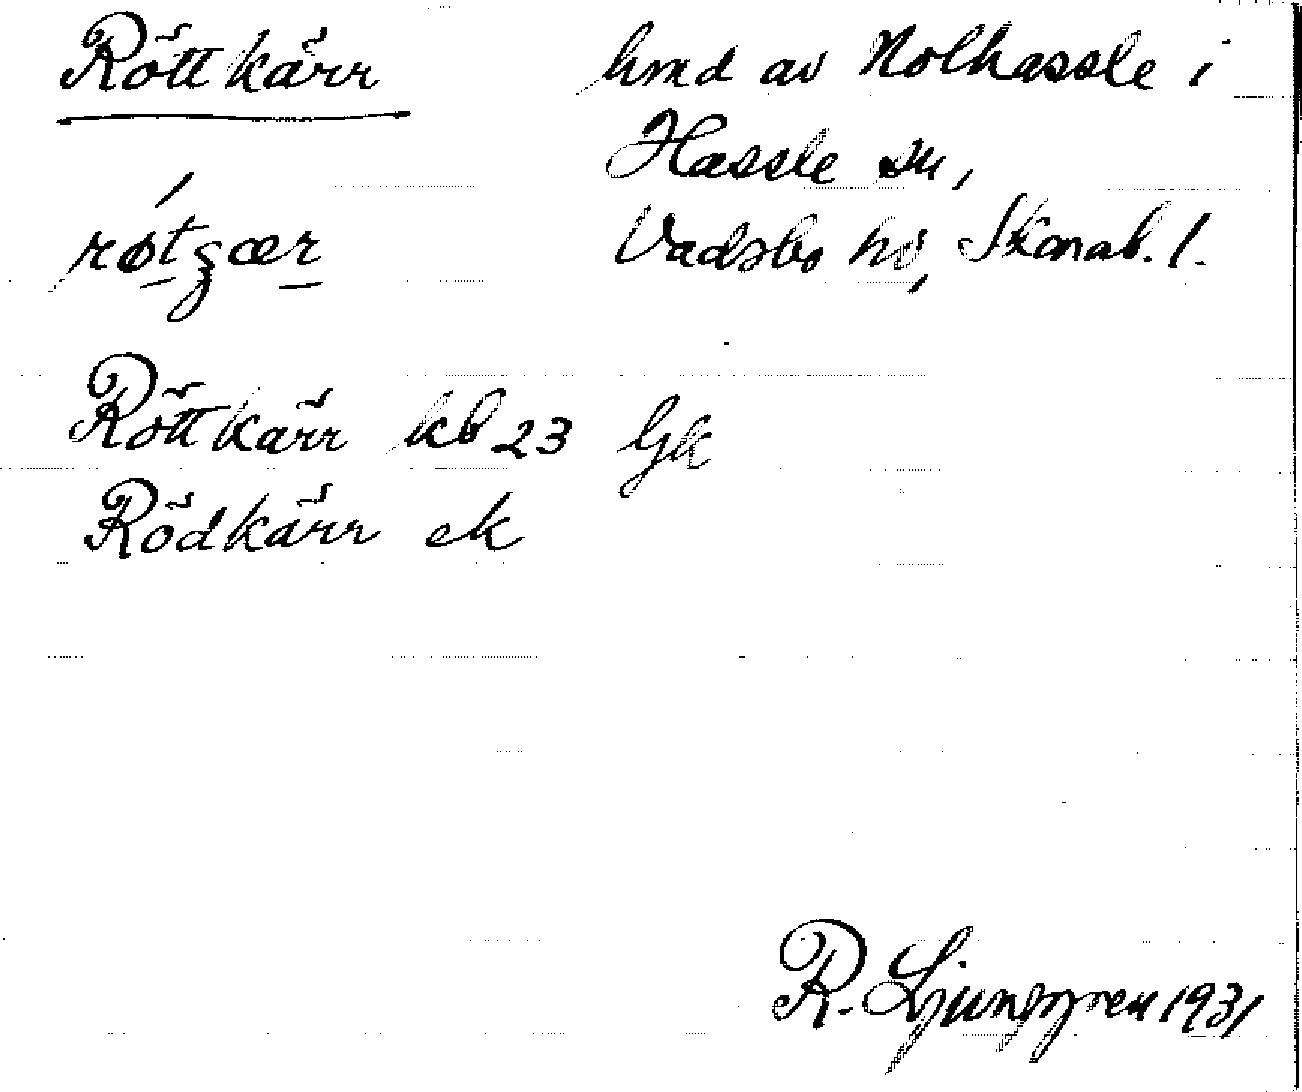 Röttkärr
hmd av Nolhassle i
Hassle sn,
Vadsbo hd, Skarab. l.
Röttkärr kb 23 Gk
Rödkärr ek
R. Ljunggren 1931